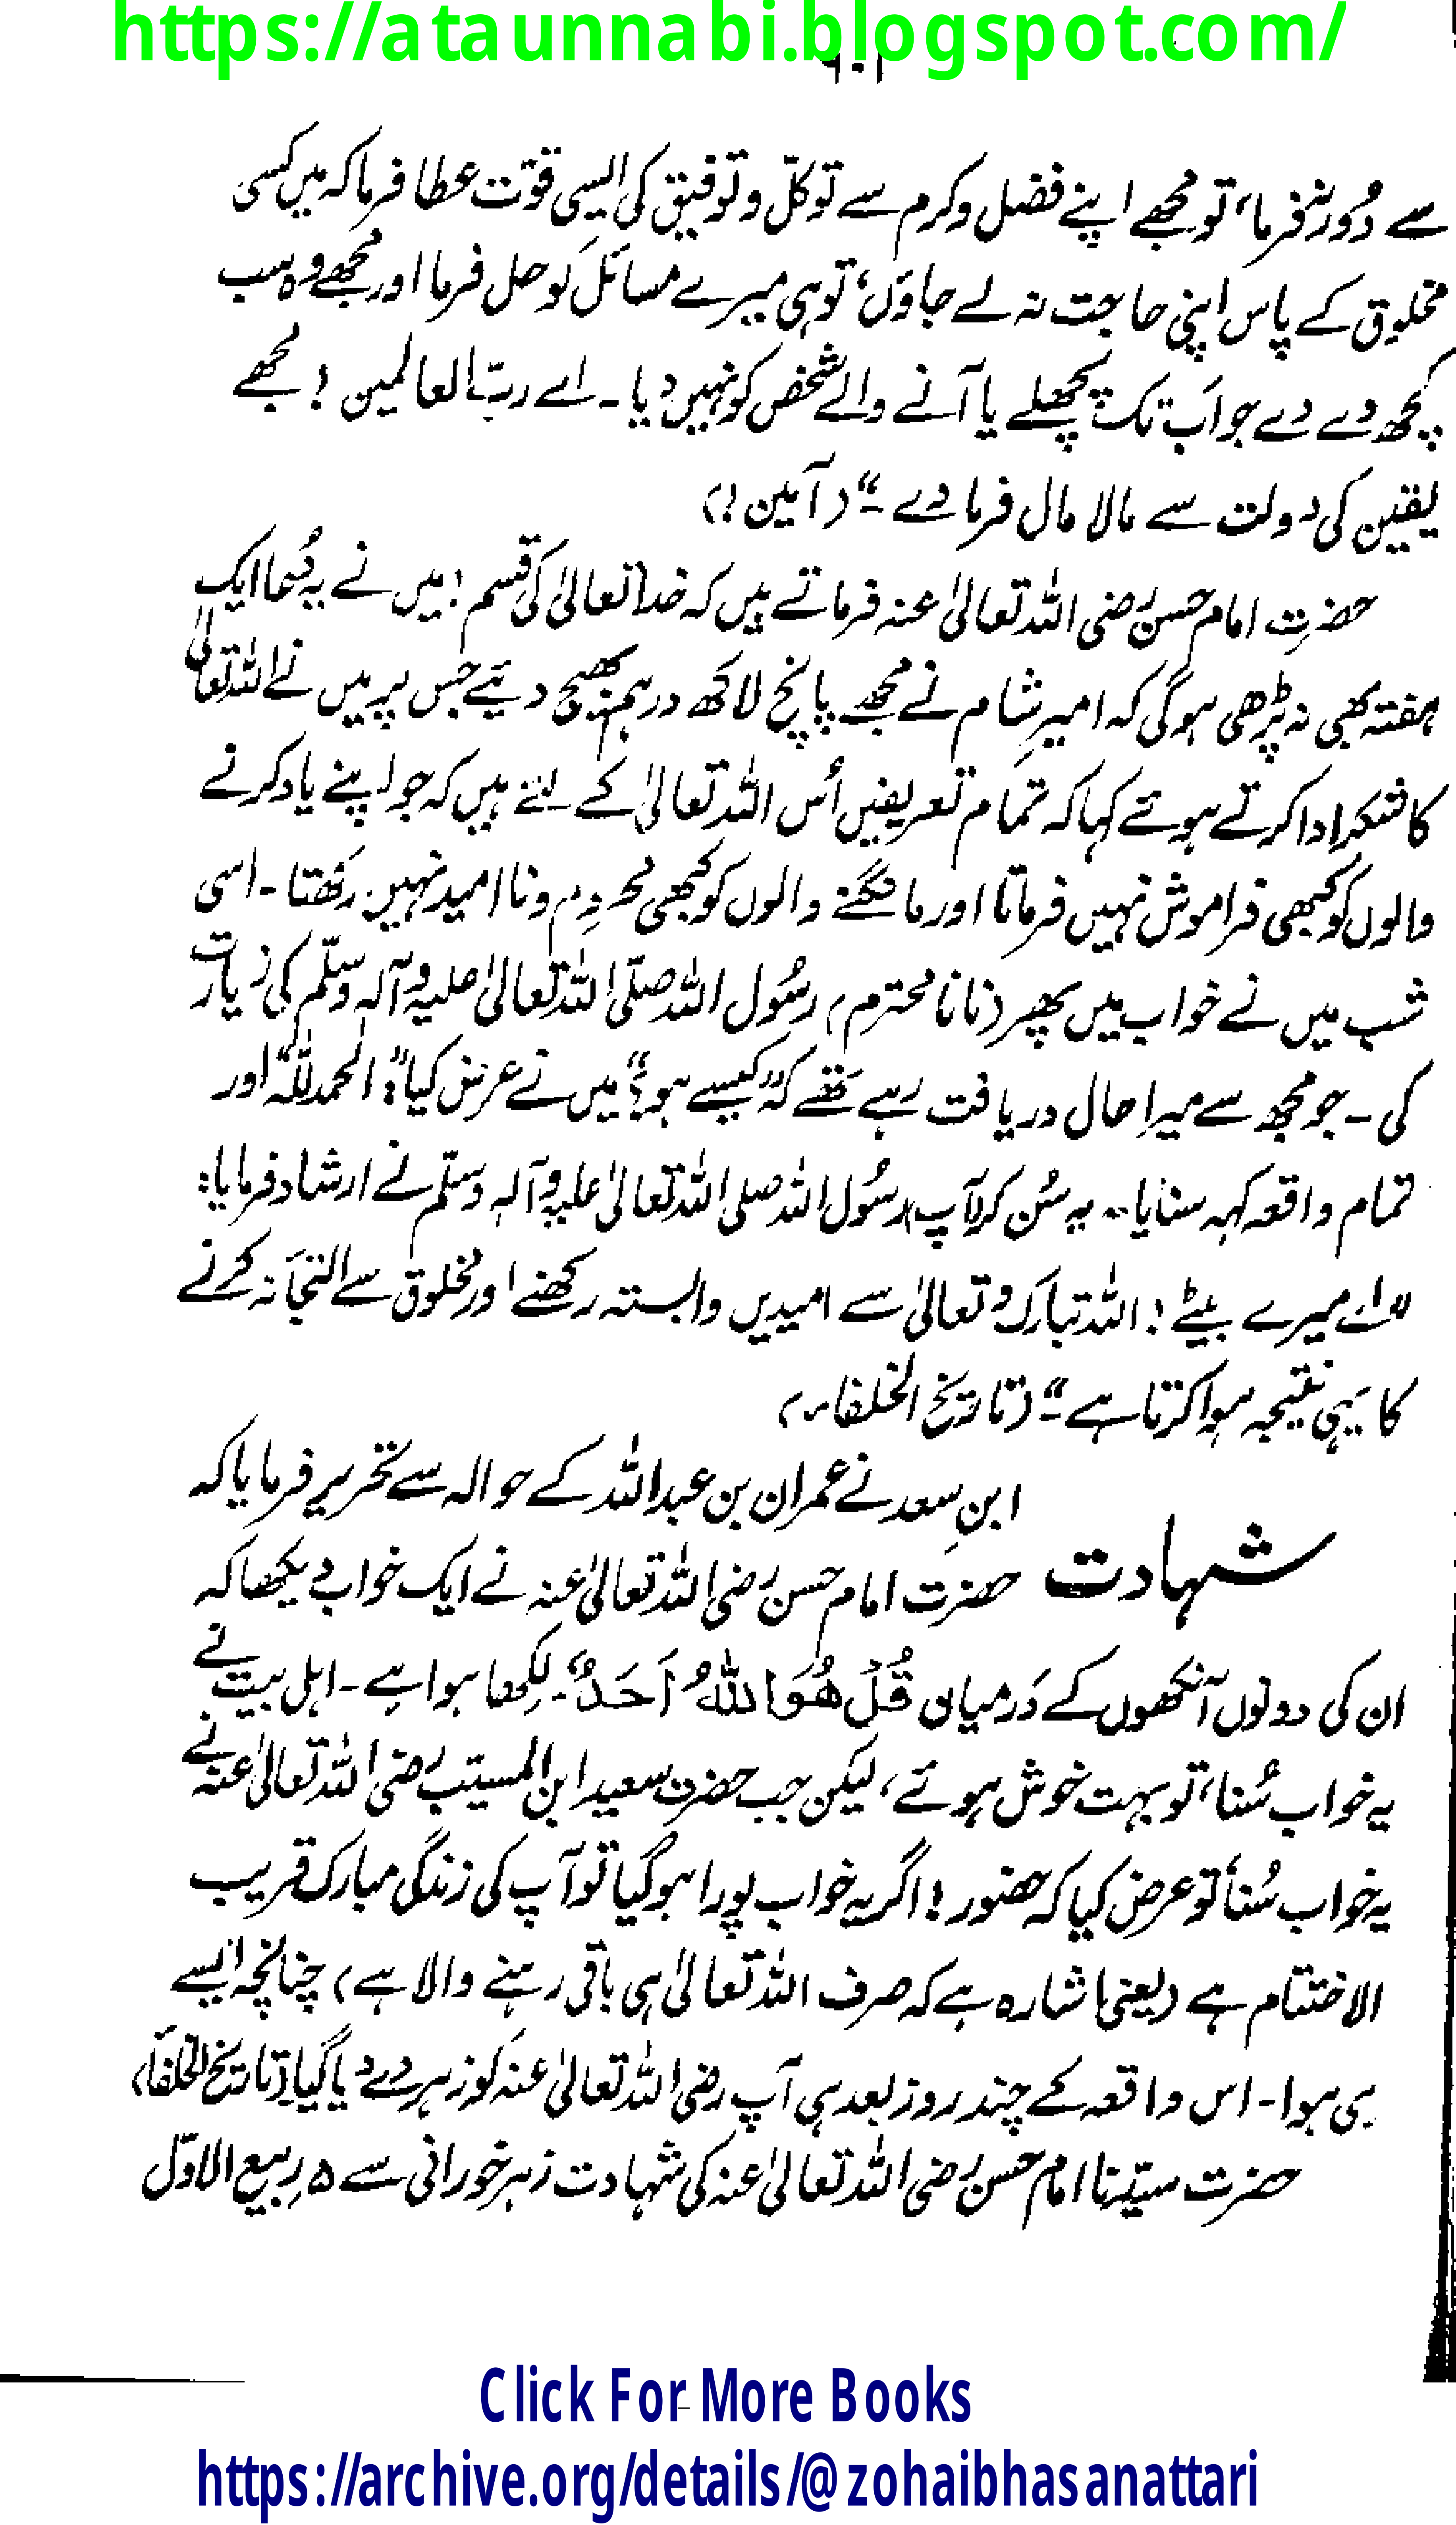 https://ataunnabi.blogspot.com/
سے دُور نہ فرما، تو مجھے اپنے فضل و کرم سے توکّل و توفیق کی ایسی قوّت عطا فرما کہ میں کسی
مخلوق کے پاس اپنی حاجت نہ لے جاؤں، تو ہی میرے مسائل کو حل فرما اور مجھے وہ سب
کچھ دے دے جو اَب تک پچھلے یا آنے والے شخص کو نہیں دیا۔ اے ربّ العالمین! مجھے
یقین کی دولت سے مالا مال فرما دے۔“ (آمین!)
حضرت امام حسن رضی اللہ تعالیٰ عنہ فرماتے ہیں کہ خدا تعالیٰ کی قسم! میں نے یہ دُعا ایک
ہفتہ بھی نہ پڑھی ہوگی کہ امیرِ شام نے مجھے پانچ لاکھ درہم بھیج دیئے جس پر میں نے اللہ تعالیٰ
کا شکر ادا کرتے ہوئے کہا کہ تمام تعریفیں اُس اللہ تعالیٰ کے لئے ہیں کہ جو اپنے یاد کرنے
والوں کو کبھی فراموش نہیں فرماتا اور مانگنے والوں کو کبھی محروم و نا امید نہیں رکھتا۔ اسی
شب میں نے خواب میں پھر (نانا محترم) رسُول اللہ صلّی اللہ تعالیٰ علیہ وآلہ وسلّم کی زیارت
کی۔ جو مجھ سے میرا حال دریافت رہے تھے کہ ”کیسے ہو؟“ میں نے عرض کیا: ”الحمد للہ“ اور
تمام واقعہ کہہ سنایا۔ یہ سُن کر (آپ) رسُول اللہ صلی اللہ تعالیٰ علیہ وآلہ وسلّم نے ارشاد فرمایا:
”اے میرے بیٹے! اللہ تبارک و تعالیٰ سے امیدیں وابستہ رکھنے اور مخلوق سے التجا نہ کرنے
کا یہی نتیجہ ہوا کرتا ہے۔“ (تاریخ الخلفاء)
شہادت
ابنِ سعد نے عمران بن عبداللہ کے حوالہ سے تحریر فرمایا کہ
حضرت امام حسن رضی اللہ تعالیٰ عنہ نے ایک خواب دیکھا کہ
ان کی دونوں آنکھوں کے درمیان قُلْ هُوَ اللهُ اَحَدٌ۔ لکھا ہوا ہے۔ اہل بیت نے
یہ خواب سُنا، تو بہت خوش ہوئے، لیکن جب حضرت سعید ابن المسیّب رضی اللہ تعالیٰ عنہ نے
یہ خواب سُنا تو عرض کیا کہ حضور! اگر یہ خواب پورا ہو گیا تو آپ کی زندگی مبارک قریب
الاختتام ہے (یعنی اشارہ ہے کہ صرف اللہ تعالیٰ ہی باقی رہنے والا ہے) چنانچہ ایسے
ہی ہوا۔ اس واقعہ کے چند روز بعد ہی آپ رضی اللہ تعالیٰ عنہ کو زہر دے دیا گیا۔ (تاریخ الخلفاء)
حضرت سیّدنا امام حسن رضی اللہ تعالیٰ عنہ کی شہادت زہر خورانی سے ۵ ربیع الاوّل
Click For More Books
https://archive.org/details/@zohaibhasanattari